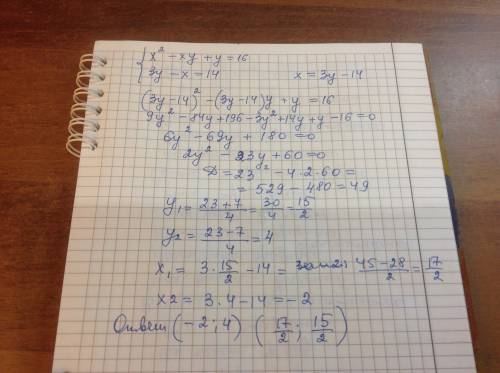 { x² - xy + y = 16
3y - x = 14        x = 3y - 14
(3y - 14)² - (3y - 14)y + y = 16
9y² - 84y + 196 - 3y² + 14y + y - 16 = 0
6y² - 69y + 180 = 0
2y² - 23y + 60 = 0
D = 23² - 4·2·60 =
= 529 - 480 = 49
y₁ = (23+7)/4 = 30/4 = 15/2
y₂ = (23-7)/4 = 4
x₁ = 3·15/2 - 14 = (45-28)/2 = 17/2
x2 = 3·4 - 14 = -2
Ответ (-2; 4) (17/2; 15/2)